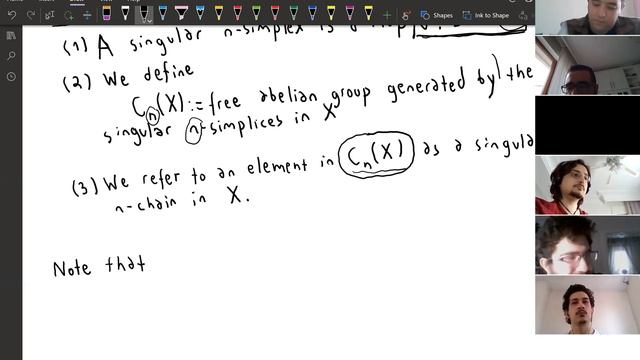 Shapes Ink to Shape
(1) A singular n-simplex is a map
(2) We define
Cn(X) := free abelian group generated by the
singular n-simplices in X
(3) We refer to an element in Cn(X) as a singula
n-chain in X.
Note that